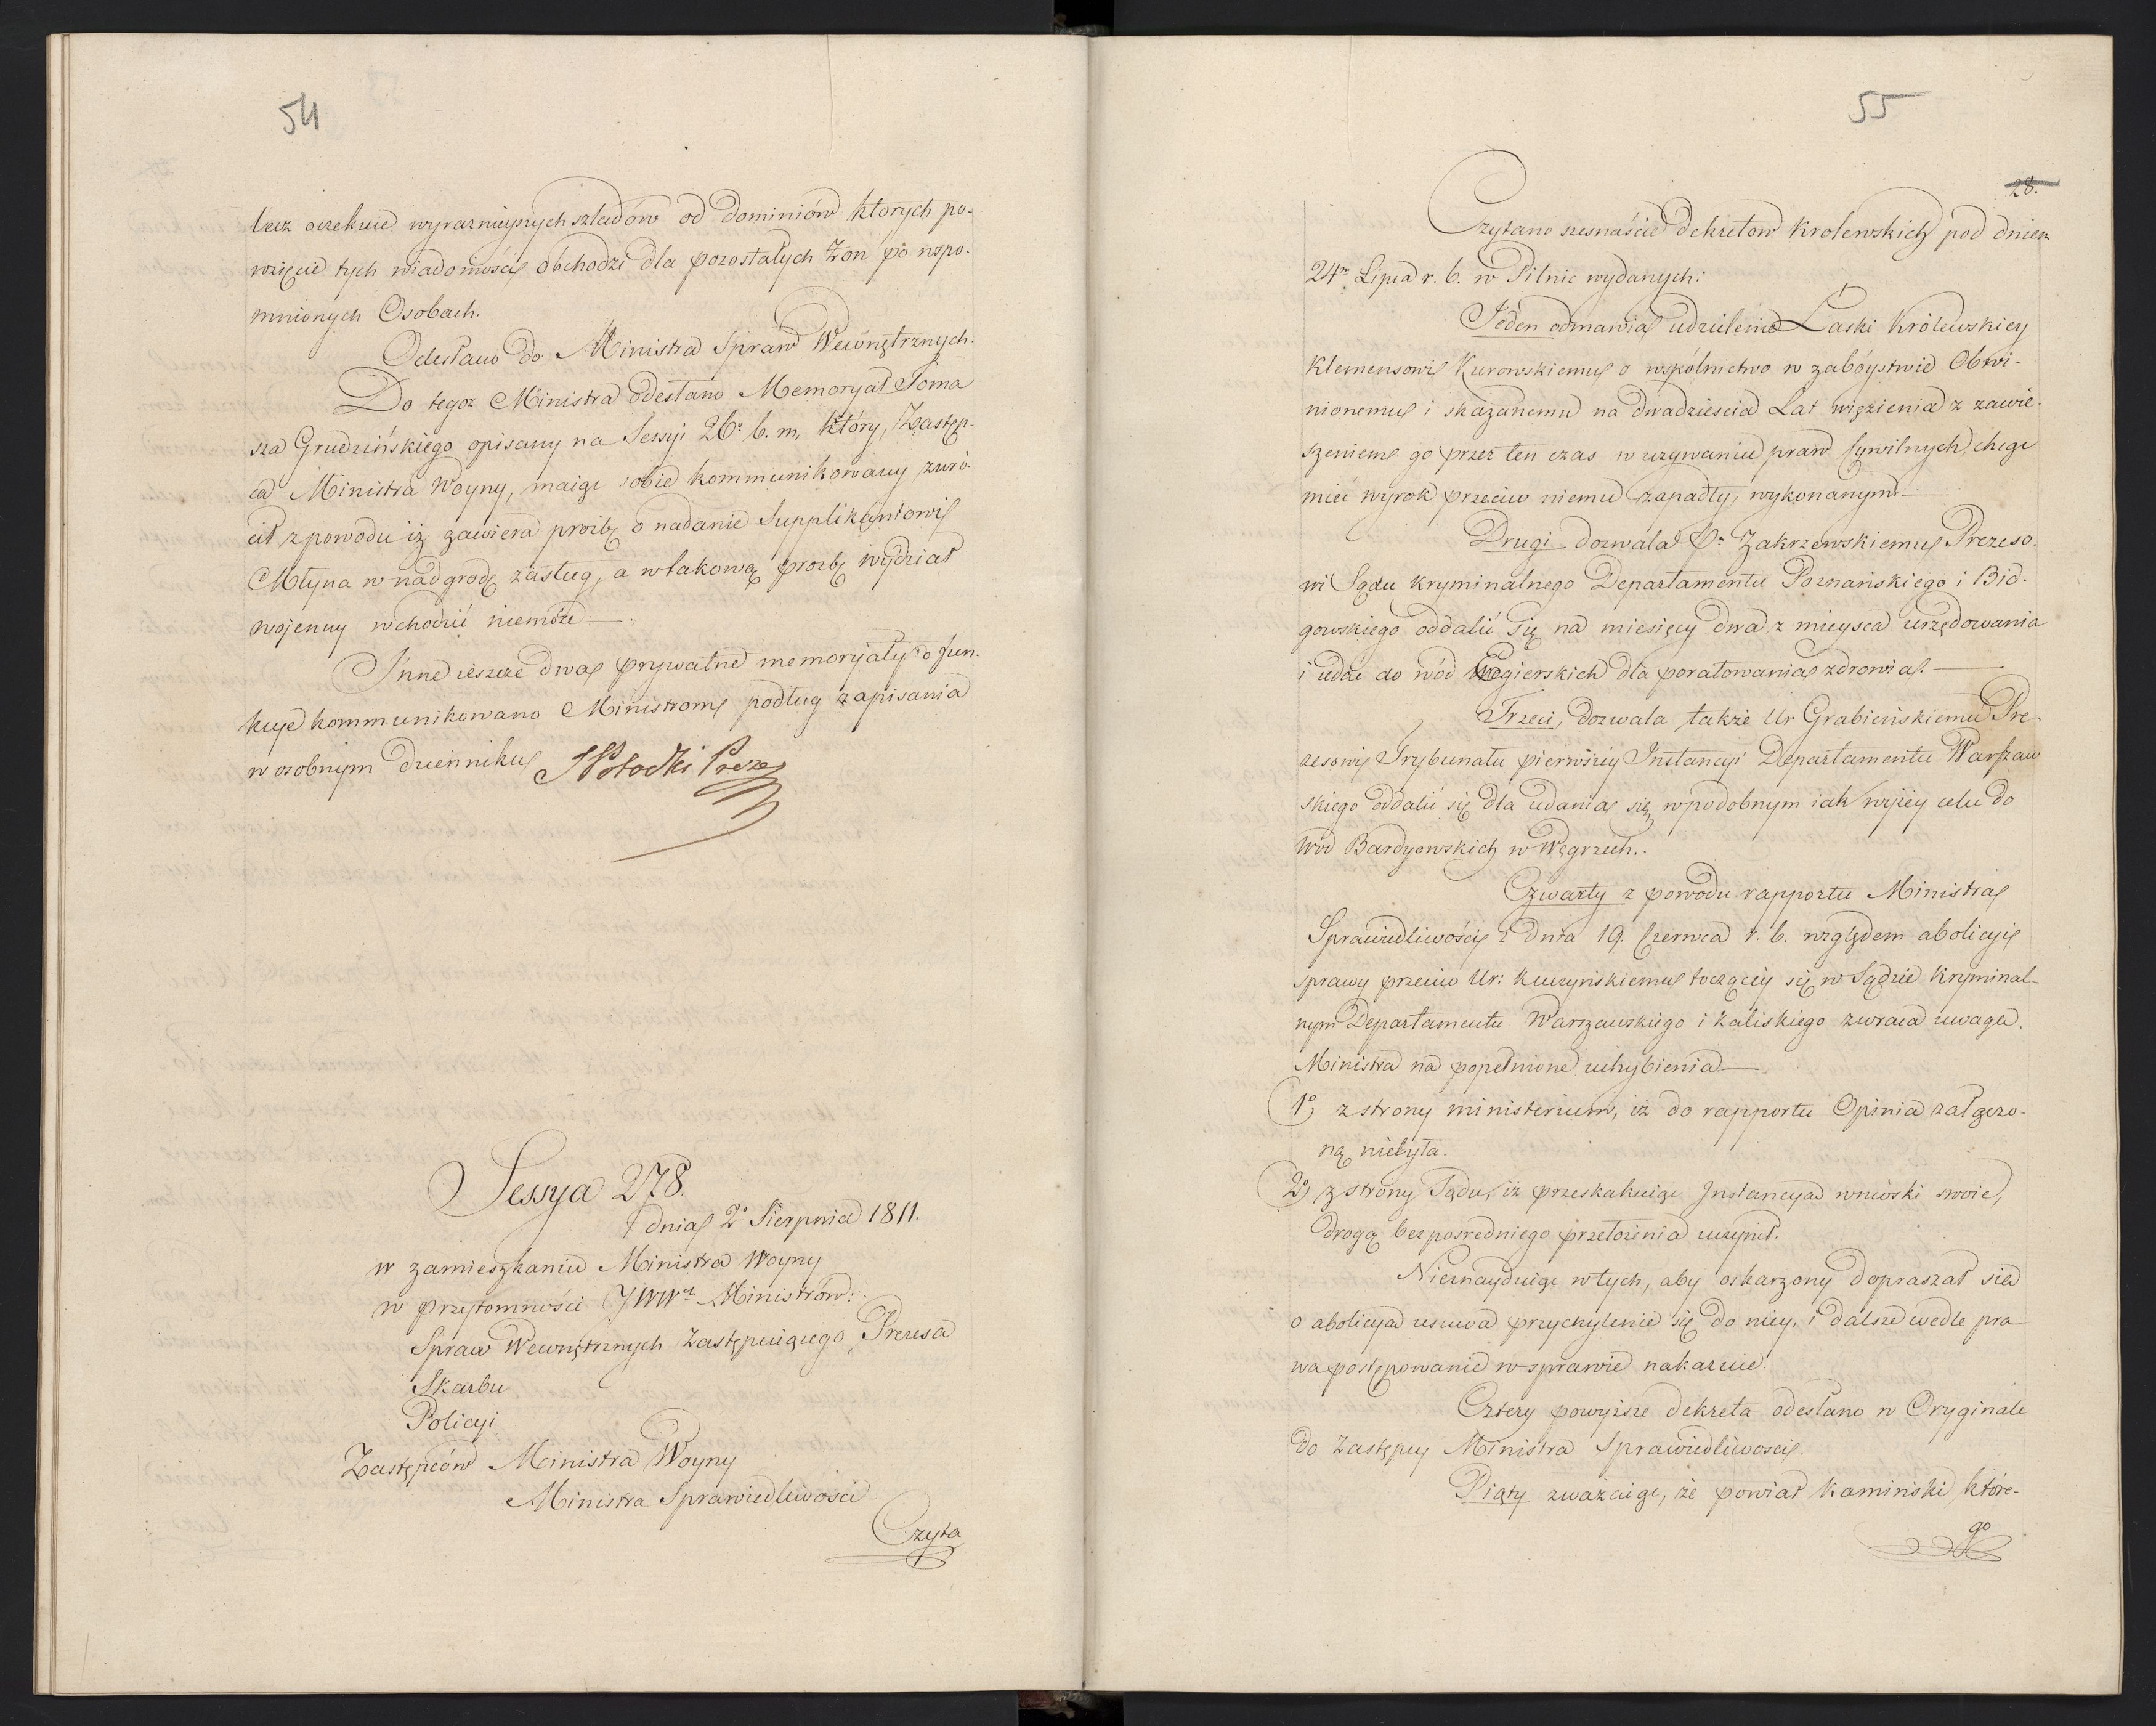 54
lecz oczekuie wyraznieyszych szladów od Dominiów ktorych po-
wzięcie tych wiadomości obchodzi dla pozostałych Zon po wspo-
mnionych Osobach.
Odesłano do Ministra Spraw Wewnętrznych.
Do tegoz Ministra odesłano Memoryał Toma
sza Grudzińskiego opisany na Sessyi 26a b. m. który, Zastęp-
ca Ministra Woyny, maiąc sobie kommunikowany zwró-
cił z powodu iż zawiera prośbę o nadanie Supplikantowi
Młyna w nadgrodę zasług, a w takową prozbę wydział
wojenny wchodzić niemoże
Inne ieszcze dwa prywatne memoryały do fun-
kuje kommunikowano Ministrom podług zapisania
w osobnym dzienniku SPotocki Prezes
Sessya 278.
dnia 2o Sierpnia 1811.
w zamieszkaniu Ministra Woyny
w przytomności JWWch Ministrów:
Spraw Wewnętrznych Zastępuiącego Prezesa
Skarbu
Policyi
Zastępców Ministra Woyny
Ministra Sprawiedliwości
Czyta
55
28.
Czytano szesnaście Dekretow Krolewskich pod dniem
24m Lipca r. b. w Pilnic wydanych:
Jeden odmawia udzielenie Łaski Królewskiey
Klemensowi Kurowskiemu o wspólnictwo w zabóystwie Obwi-
nionemu i skazanemu na dwadziescia Lat więzienia z zawie-
szeniem go przez ten czas w uzywaniu praw Cywilnych, chcąc
mieć wyrok przeciw niemu zapadły, wykonanym.
Drugi dozwala P. Zakrzewskiemu Prezeso-
wi Sądu Kryminalnego Departamentu Poznańskiego i Bid-
gowskiego oddalić się na miesięcy dwa z mieysca urzędowania
i udac do wód Węgierskich dla poratowania zdrowia.
Trzeci, Dozwala także Ur Grabieńskiemu Pre-
zesowi Trybunału pierwszéy Instancyi Departamentu Warszaw
skiego oddalić się dla udania się w podobnym iak wyżéy celu do
Wód Bardyowskich w Węgrzech.
Czwarty z powodu rapportu Ministra
Sprawiedliwości z dnia 19. Czerwca r. b. względem abolicyi
sprawy przeciw Ur: Kuczyńskiemu toczącéy się w Sądzie Kryminal-
nym Departamentu Warszawskiego i Kaliskiego zwraca uwagę
Ministra na popełnione uchybienia
1o) z strony ministerium, iż do rapportu Opinia załączo-
ną niebyła.
2o) z strony Sądu, iż przeskakuiąc Instancya wnioski swoie,
drogą bezpośredniego przełożenia uczynił.
Nieznayduiąc w tych, aby oskarzony dopraszał sie
o abolicya usuwa przychylenie się do niéy, i dalsze wedle pra
wa postępowanie w sprawie nakazuie.
Cztery powyższe dekreta odesłano w Oryginale
do Zastępcy Ministra Sprawiedliwości.
Piąty zważaiąc, że powiat Kamiński które-
go